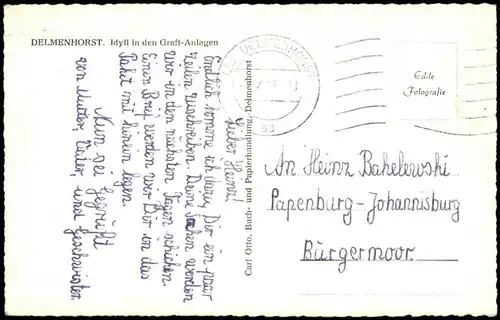 DELMENHORST. Idyll in den Graft-Anlagen
Lieber Heinz!
Endlich komme ich dazu, Dir ein paar
Zeilen zuschreiben. Deine Sachen werden
wir in den nächsten Tagen schicken.
Einen Brief werden wir Dir in das
Paket mit hinein legen.
Nun sei Gegrüßt
von Mutter, Vater, und Geschwister
Carl Otto, Buch- und Papierhandlung, Delmenhorst
DELMENHORST
Echte
Fotografie
An Heinz Bahelewski
Papenburg-Johannisburg
Bürgermoor.